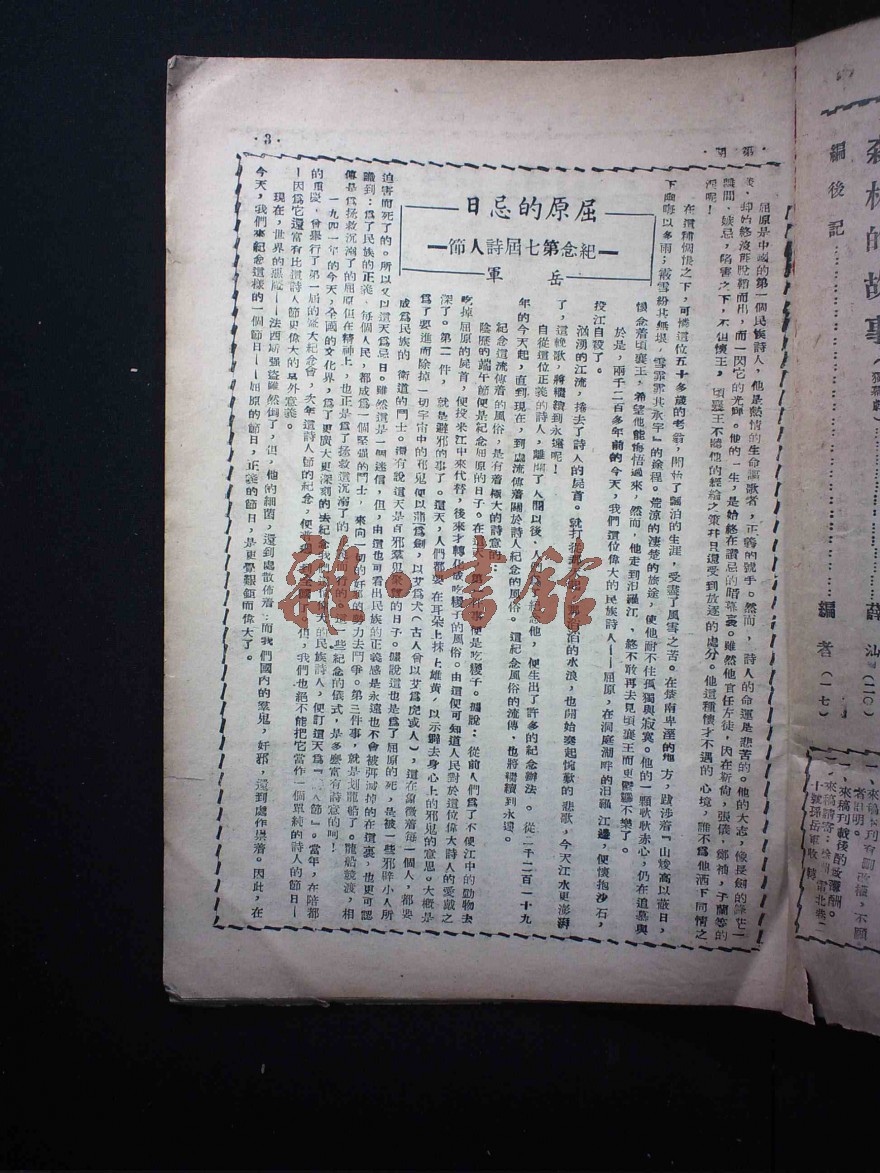 森林的故事（獨幕劇）……薛汕（一〇）
編後記……編者（一七）
一、來稿本刊有刪改權，不願者註明。
一、來稿刊載後酌致薄酬。
·3·
屈原的忌日
—紀念第七屆詩人節—
岳軍
屈原是中國的第一個民族詩人，他是熱情的生命謳歌者，正義的號手。然而，詩人的命運是悲苦的。他的大志，像長劍的鋒芒一
樣，却始終沒
脫鞘而出，而一閃它的光輝。他的一生，是始終在讒忌的暗幕裏。雖然他官任左徒，因在靳尙，張儀，鄭袖，子蘭等的
讒間，嫉忌，陷害之下，不但懷王，頃襄王不聽他的經綸之策，幷且還受到放逐的處分。他這種懷才不遇的心境，誰不爲他洒下同情之
淚呢！
在這種惆悵之下，可憐這位五十多歲的老翁，開始了飄泊的生涯，受盡了風雪之苦。在楚南卑溼的地方，跋涉着『山峻高以蔽日，
下幽晦以多雨；霰雪紛其無垠，雲霏霏其承宇』的途程。荒涼的淒楚的旅途，使他耐不住孤獨與寂寞。他的一顆耿耿赤心，仍在追慕與
懷念着頃襄王，希望他能悔悟過來，然而，他走到汨羅江，終不敢再去見頃襄王而更鬱鬱不樂了。
於是，兩千二百多年前的今天，我們這位偉大的民族詩人——屈原，在洞庭湖畔的汨羅江邊，便懷抱沙石，
投江自殺了。
汹湧的江流，捲去了詩人的屍首。就打從那
的水浪，也開始奏起惋歎的悲歌，今天江水更澎湃
了，這輓歌，將繼續到永遠呢！
自從這位正義的詩人，離開了人間以後，人
念他，便生出了許多的紀念辦法。從二千二百一十九
年的今天起，直到現在，到處流傳着關於詩人紀念的風俗。這紀念風俗的流傳，也將繼續到永遠。
紀念這流傳着的風俗，是有着極大的詩意的：
陰歷的端午節便是紀念屈原的日子。在這天，第一件事便是吃糭子。據說：從前人們爲了不使江中的動物去
吃掉屈原的屍首，便投米江中來代替，後來才轉化成吃糭子的風俗。由這便可知道人民對於這位偉大詩人的愛戴之
深了。第二件，就是避邪的事了。這天，人們都要在耳朵上抹上雄黃，以示鋼去身心上的邪鬼的意思。大概是
爲了要進而除掉一切宇宙中的邪鬼便以蒲爲劍，以艾爲犬（古人曾以艾爲虎或人），這在象徵着每一個人，都要
成爲民族的衛道的鬥士。還有說這天是百邪羣鬼聚會的日子。據說這也是爲了屈原的死，是被一些邪辟小人所
迫害而死了的。所以又以這天爲忌日。雖然這是一個迷信，但，由這也可看出民族的正義感是永遠也不會被殲滅掉的在這裏，也更可認
識到：爲了民族的正義，每個人民，都成爲一個堅强的鬥士，來向一切的奸邪的勢力去鬥爭。第三件事，就是划龍船了。龍船競渡，相
傳是爲拯救沉溺了的屈原但在精神上，也正是爲了拯救這沉溺了的人
而行的。這一些紀念的儀式，是多麼富有詩意的呵！
一九四一年的今天，全國的文化界，爲了更廣大更深刻的去紀念我
偉大的民族詩人，便訂這天爲『詩人節』。當年，在陪都
的重慶，曾舉行了第一屆的盛大紀念會，次年這詩人節的紀念，便普
到全國
但，我們也絕不能把它當作一個單純的詩人的節日—
—因爲它還富有比這詩人節更偉大的另外意義。
現在，世界的惡魔——法西斯强盜雖然倒了，但，他的細菌，還到處散佈着；而我們國內的羣鬼，奸邪，還到處作祟着。因此，在
今天，我們來紀念這樣的一個節日——屈原的節日，正義的節日，是更覺艱鉅而偉大了。
雜·書館